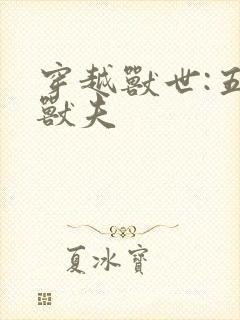 穿越獸世:五
獸夫
夏冰寶